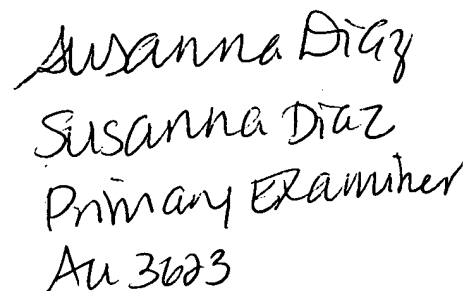 Susanna Diaz
Susanna Diaz
Primary Examiner
AU 3623